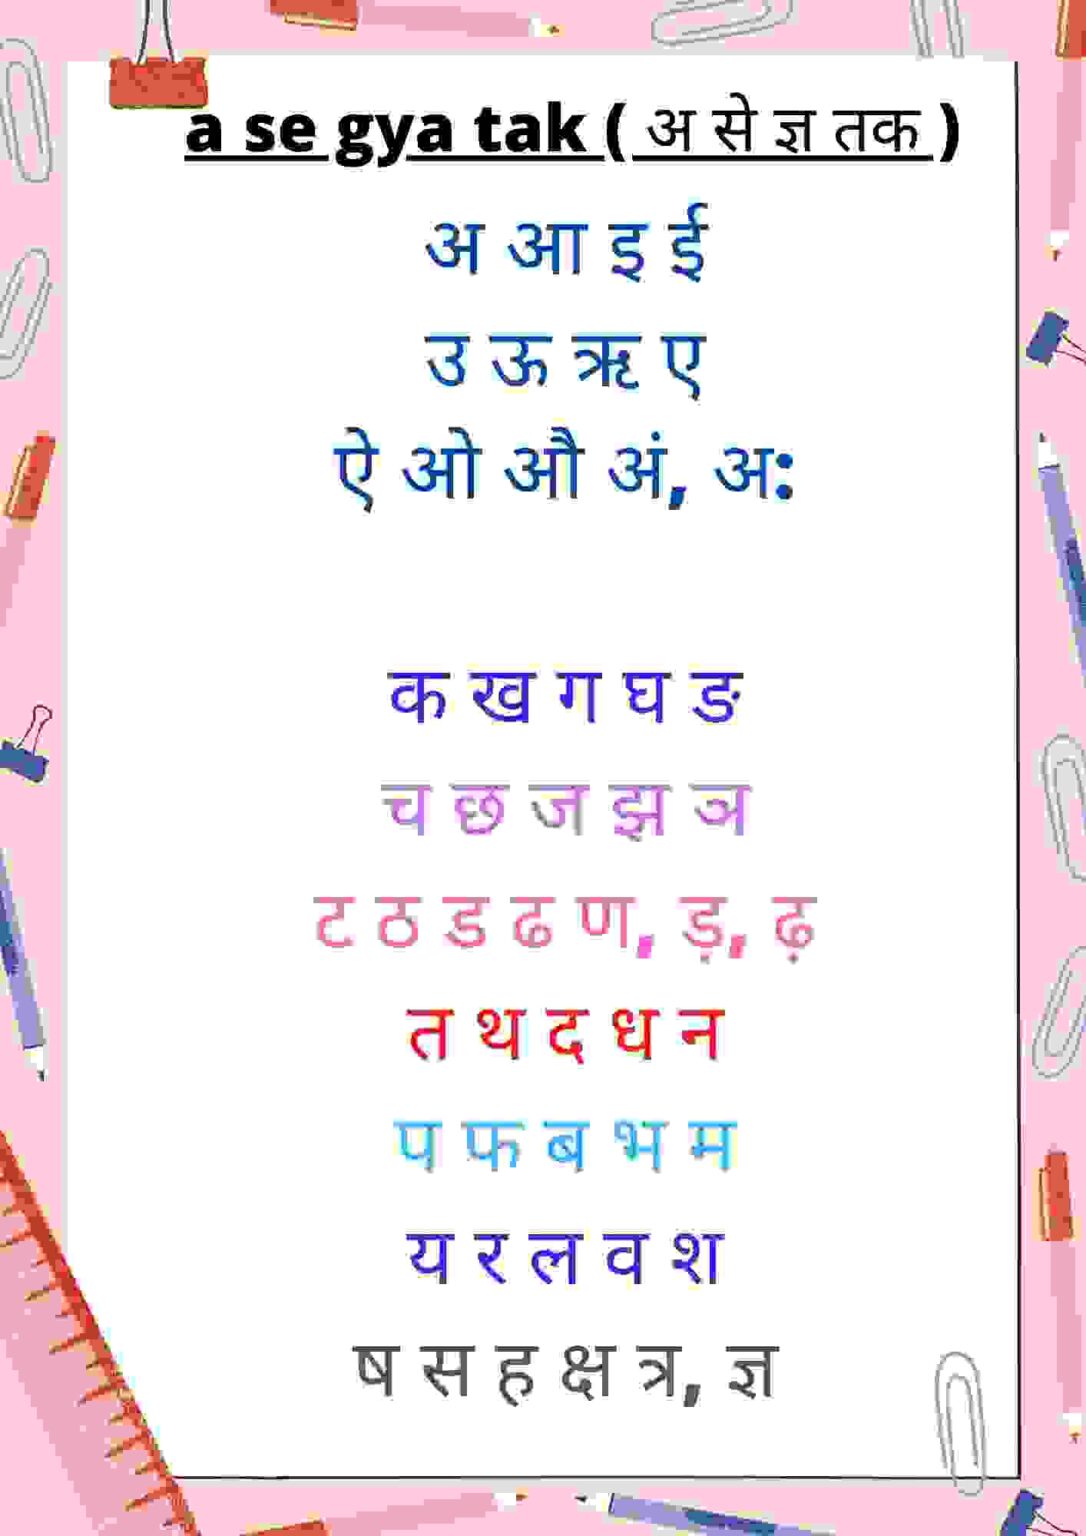 a se gya tak ( अ से ज्ञ तक )
अ आ इ ई
उ ऊ ऋ ए
ऐ ओ औ अं, अ:
क ख ग घ ङ
च छ ज झ ञ
ट ठ ड ढ ण, ड़, ढ़
त थ द ध न
प फ ब भ म
य र ल व श
ष स ह क्ष त्र, ज्ञ